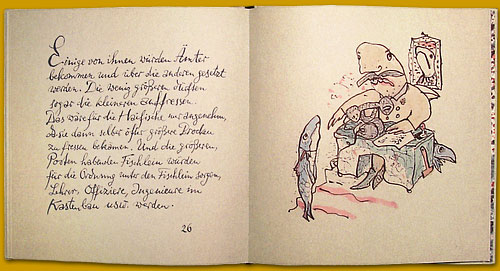 Einige von ihnen würden Ämter
bekommen und über die anderen gesetzt
werden. Die wenig größeren dürften
sogar die kleineren auffressen.
Das wäre für die Haifische nur angenehm,
da sie dann selber öfter größere Brocken
zu fressen bekämen. Und die größeren,
Posten habenden Fischlein würden
für die Ordnung unter den Fischlein sorgen,
Lehrer, Offiziere, Ingenieure im
Kastenbau usw. werden.
26